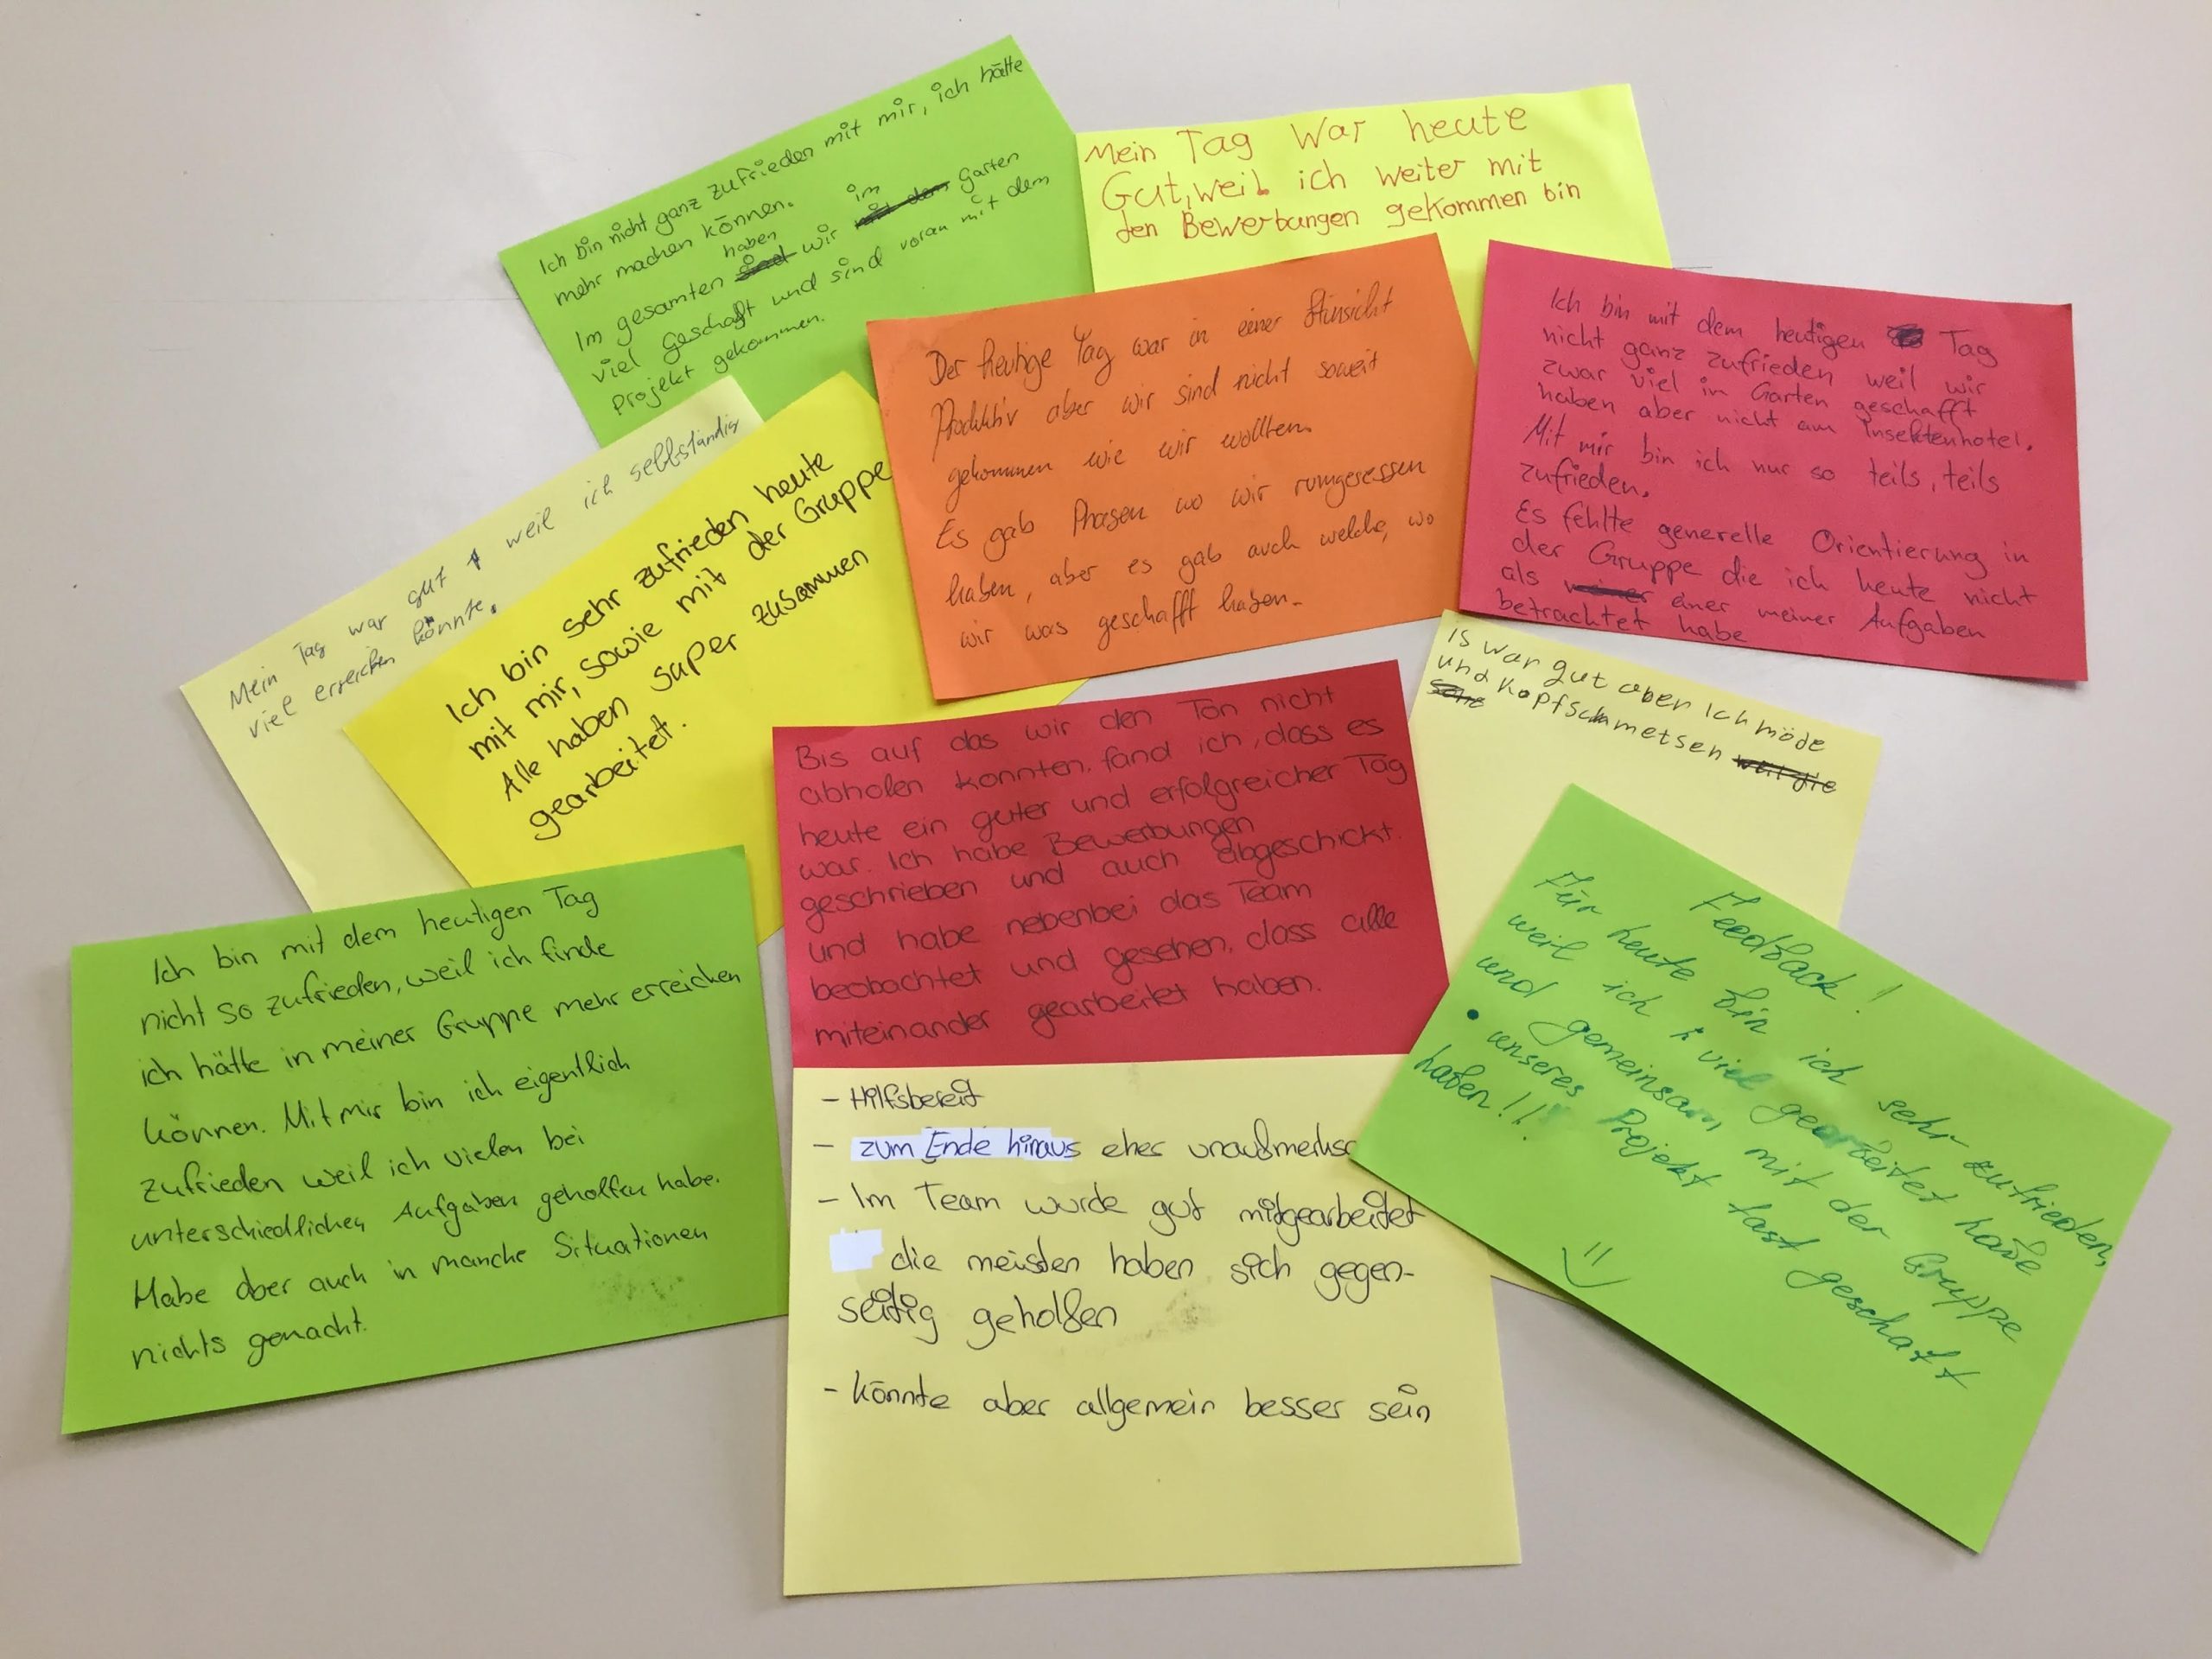 Ich bin nicht ganz zufrieden mit mir, ich hätte
mehr machen können.
Im gesamten haben wir im Garten
viel geschafft und sind voran mit dem
Projekt gekommen.
Mein Tag war heute
Gut, weil ich weiter mit
den Bewerbungen gekommen bin
Der heutige Tag war in einer Hinsicht
Produktiv aber wir sind nicht soweit
gekommen wie wir wollten.
Es gab Phasen wo wir rumgesessen
haben, aber es gab auch welche, wo
wir was geschafft haben.
Ich bin mit dem heutigen Tag
nicht ganz zufrieden weil wir
zwar viel im Garten geschafft
haben aber nicht am Insektenhotel.
Mit mir bin ich nur so teils, teils
zufrieden.
Es fehlte generelle Orientierung in
der Gruppe die ich heute nicht
als einer meiner Aufgaben
betrachtet habe
Mein Tag war gut weil ich selbständig
viel erreichen könnte.
Ich bin sehr zufrieden heute
mit mir, sowie mit der Gruppe
Alle haben super zusammen
gearbeitet.
Bis auf das wir den Ton nicht
abholen konnten, fand ich, dass es
heute ein guter und erfolgreicher Tag
war. Ich habe Bewerbungen
geschrieben und auch abgeschickt.
und habe nebenbei das Team
beobachtet und gesehen, dass alle
miteinander gearbeitet haben.
Is war gut aber ich möde
und kopfschmetsen
Ich bin mit dem heutigen Tag
nicht so zufrieden, weil ich finde
ich hätte in meiner Gruppe mehr erreichen
können. Mit mir bin ich eigentlich
zufrieden weil ich vielen bei
unterschiedlichen Aufgaben geholfen habe.
Habe aber auch in manche Situationen
nichts gemacht.
- Hilfsbereit
- zum Ende hinaus eher
- Im Team wurde gut mitgearbeitet
die meisten haben sich gegen-
seitig geholfen
- könnte aber allgemein besser sein
Feedback!
Für heute bin ich sehr zufrieden,
weil ich viel gearbeitet habe
und gemeinsam mit der Gruppe
• unseres Projekt fast geschaft
haben!!!